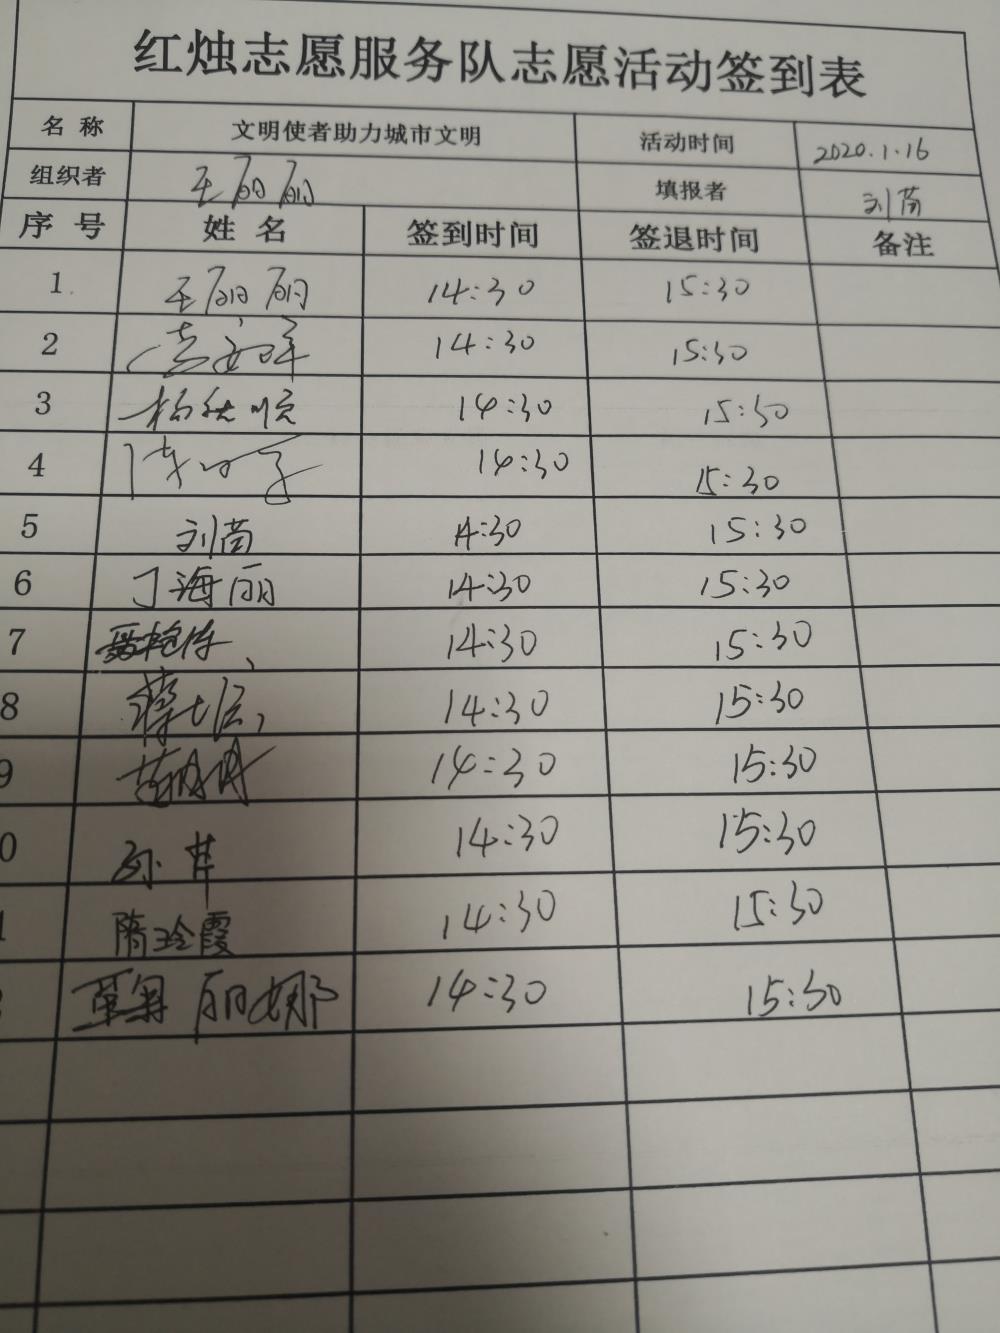 红烛志愿服务队志愿活动签到表
名 称 文明使者助力城市文明 活动时间 2020.1.16
组织者 王丽丽 填报者 刘茵
序 号 姓 名 签到时间 签退时间 备注
1 王丽丽 14:30 15:30
2 14:30 15:30
3 14:30 15:30
4 14:30 15:30
5 刘茵 14:30 15:30
6 丁海丽 14:30 15:30
7 14:30 15:30
8 14:30 15:30
9 14:30 15:30
0 孙芹 14:30 15:30
1 隋玲霞 14:30 15:30
丽娜 14:30 15:30